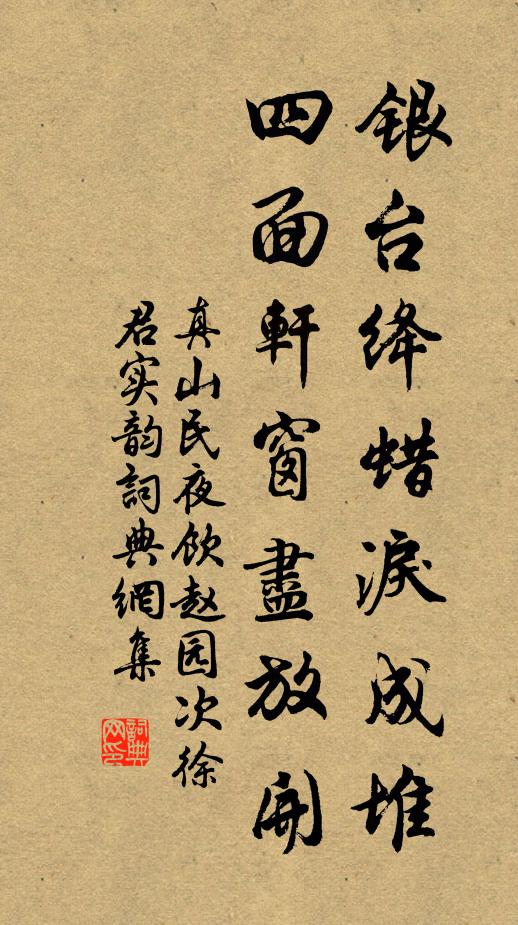 银台绛蜡淚成堆
四面軒窗盡放開
真山民夜饮赵园次徐
君实韵詞典網集
詞典网印